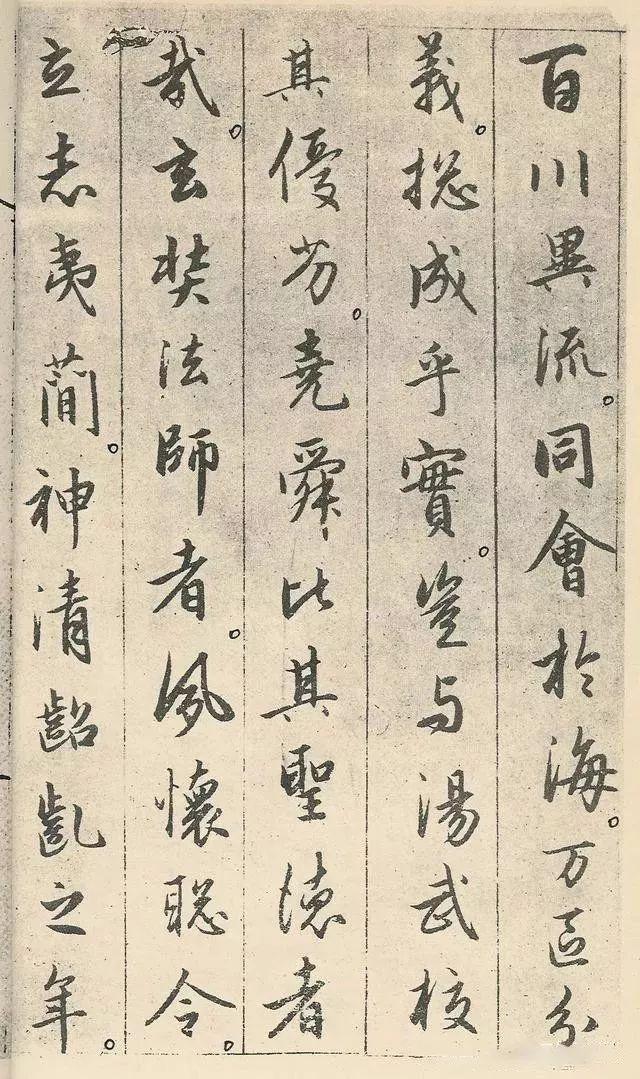 百川異流。同會於海。万區分
義。揔成乎實。豈与湯武校
其優劣。堯舜比其聖德者
哉。玄奘法師者。夙懷聡令。
立志夷簡。神清齠齔之年。